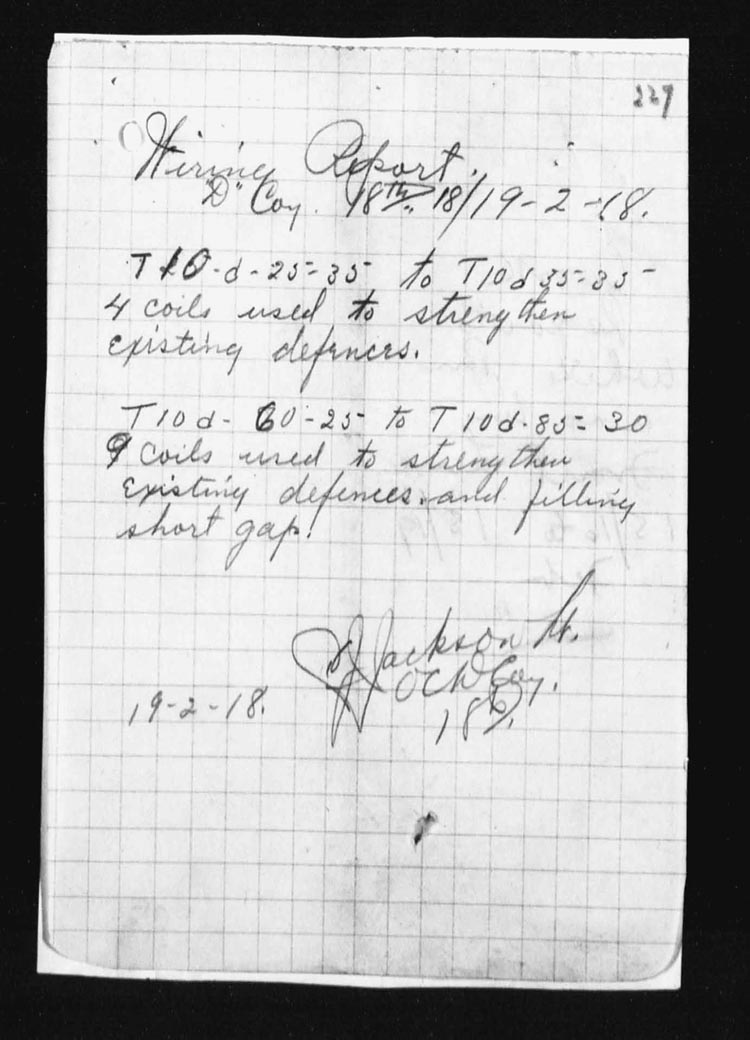 227
Wiring Report.
"D" Coy. 18th. 18/19-2-18.
T10-d-25-35 to T10d 35-35-
4 coils used to strengthen
existing defences.
T10d-60-25 to T10d-85-30
9 coils used to strengthen
existing defences and filling
short gap.
Jackson Lt.
OC "D" Coy.
19-2-18.
18